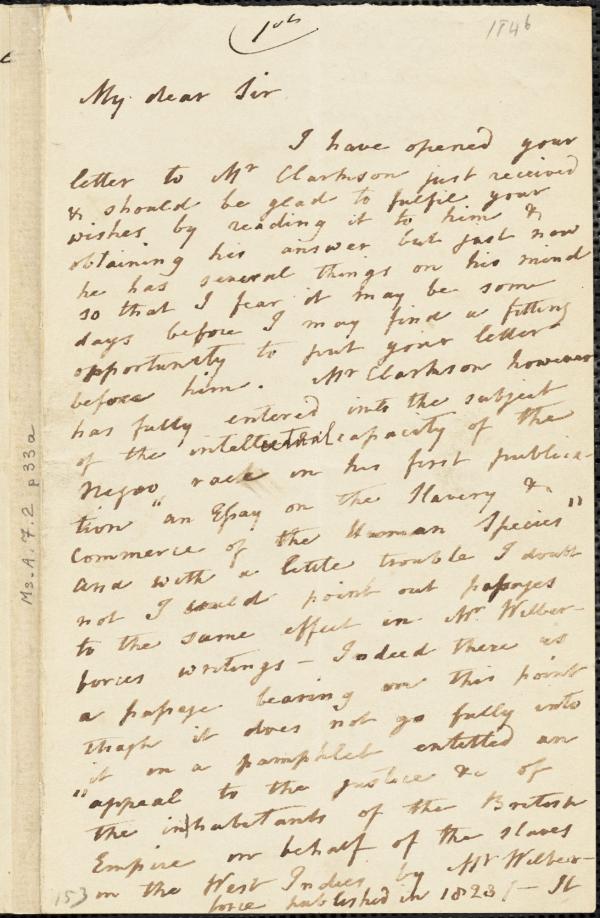 1846
My dear Sir
I have opened your
letter to Mr Clarkson just received
& should be glad to fulfil your
wishes by reading it to him &
obtaining his answer but just now
he has several things on his mind
so that I fear it may be some
days before I may find a fitting
opportunity to put your letter
before him. Mr Clarkson however
has fully entered into the subject
of the intellectual capacity of the
Negro race in his first publica-
tion "an Essay on the Slavery &
Commerce of the Human Species"
and with a little trouble I doubt
not I could point out passages
to the same effect in Mr Wilber-
forces writings - Indeed there is
a passage bearing on this point
though it does not go fully into
it in a pamphlet entitled an
"appeal to the justice &c of
the inhabitants of the British
Empire in behalf of the slaves
in the West Indies by Mr Wilber-
force published in 1823 - It
153
Ms. A. 7. 2 p 33a